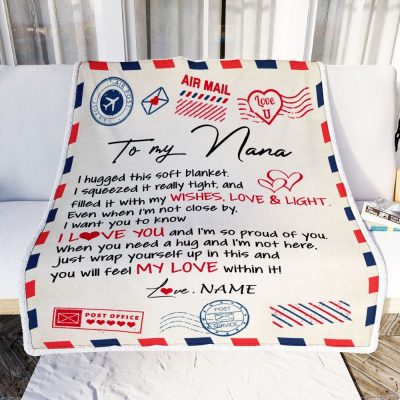 AIR POST
AIR MAIL
Love U
To my Nana
I hugged this soft blanket.
I squeezed it really tight, and
filled it with my WISHES, LOVE & LIGHT.
Even when I'm not close by.
I want you to know
I L❤VE YOU and I'm so proud of you.
When you need a hug and I'm not here,
just wrap yourself up in this and
you will feel MY LOVE within it!
Love, NAME
POST OFFICE
POST
SERVICE